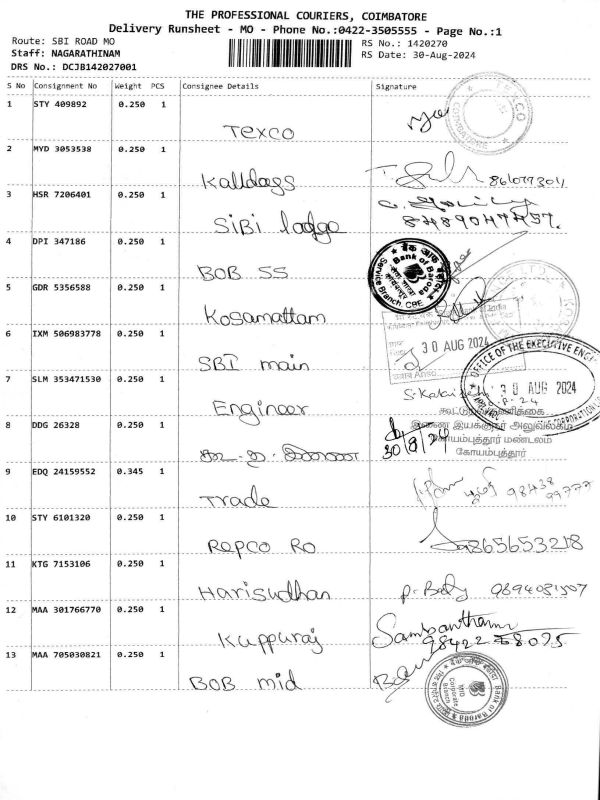 THE PROFESSIONAL COURIERS, COIMBATORE
Delivery Runsheet - MO - Phone No.:0422-3505555 - Page No.:1
Route: SBI ROAD MO
RS No.: 1420270
Staff: NAGARATHINAM
RS Date: 30-Aug-2024
DRS No.: DCJB142027001
S No Consignment No Weight PCS Consignee Details Signature
1 STY 409892 0.250 1
Texco
TEXCO
COIMBATORE
2 MYD 3053538 0.250 1
Kalldags
3 HSR 7206401 0.250 1
SiBi lodge
8489047457.
4 DPI 347186 0.250 1
BOB SS
बैंक ऑफ बड़ौदा
Bank of Baroda
Service Branch, CBE
5 GDR 5356588 0.250 1
Kosamattam
6 IXM 506983778 0.250 1
30 AUG 2024
SBI main
OFFICE OF THE EXECUTIVE ENG
30 AUG 2024
7 SLM 353471530 0.250 1
Engineer
கூட்டுறவு தணிக்கை
8 DDG 26328 0.250 1
இணை இயக்குநர் அலுவலகம்
கோயம்புத்தூர் மண்டலம்
கோயம்புத்தூர்
30/8/24
9 EDQ 24159552 0.345 1
Trade
98438
99777
10 STY 6101320 0.250 1
Repco Ro
9865653218
11 KTG 7153106 0.250 1
Harisudhan
9894081507
12 MAA 301766770 0.250 1
Kuppuraj
Sambantham
98422 28095
13 MAA 705030821 0.250 1
BOB mid
Bank of Baroda
Corporate
Branch